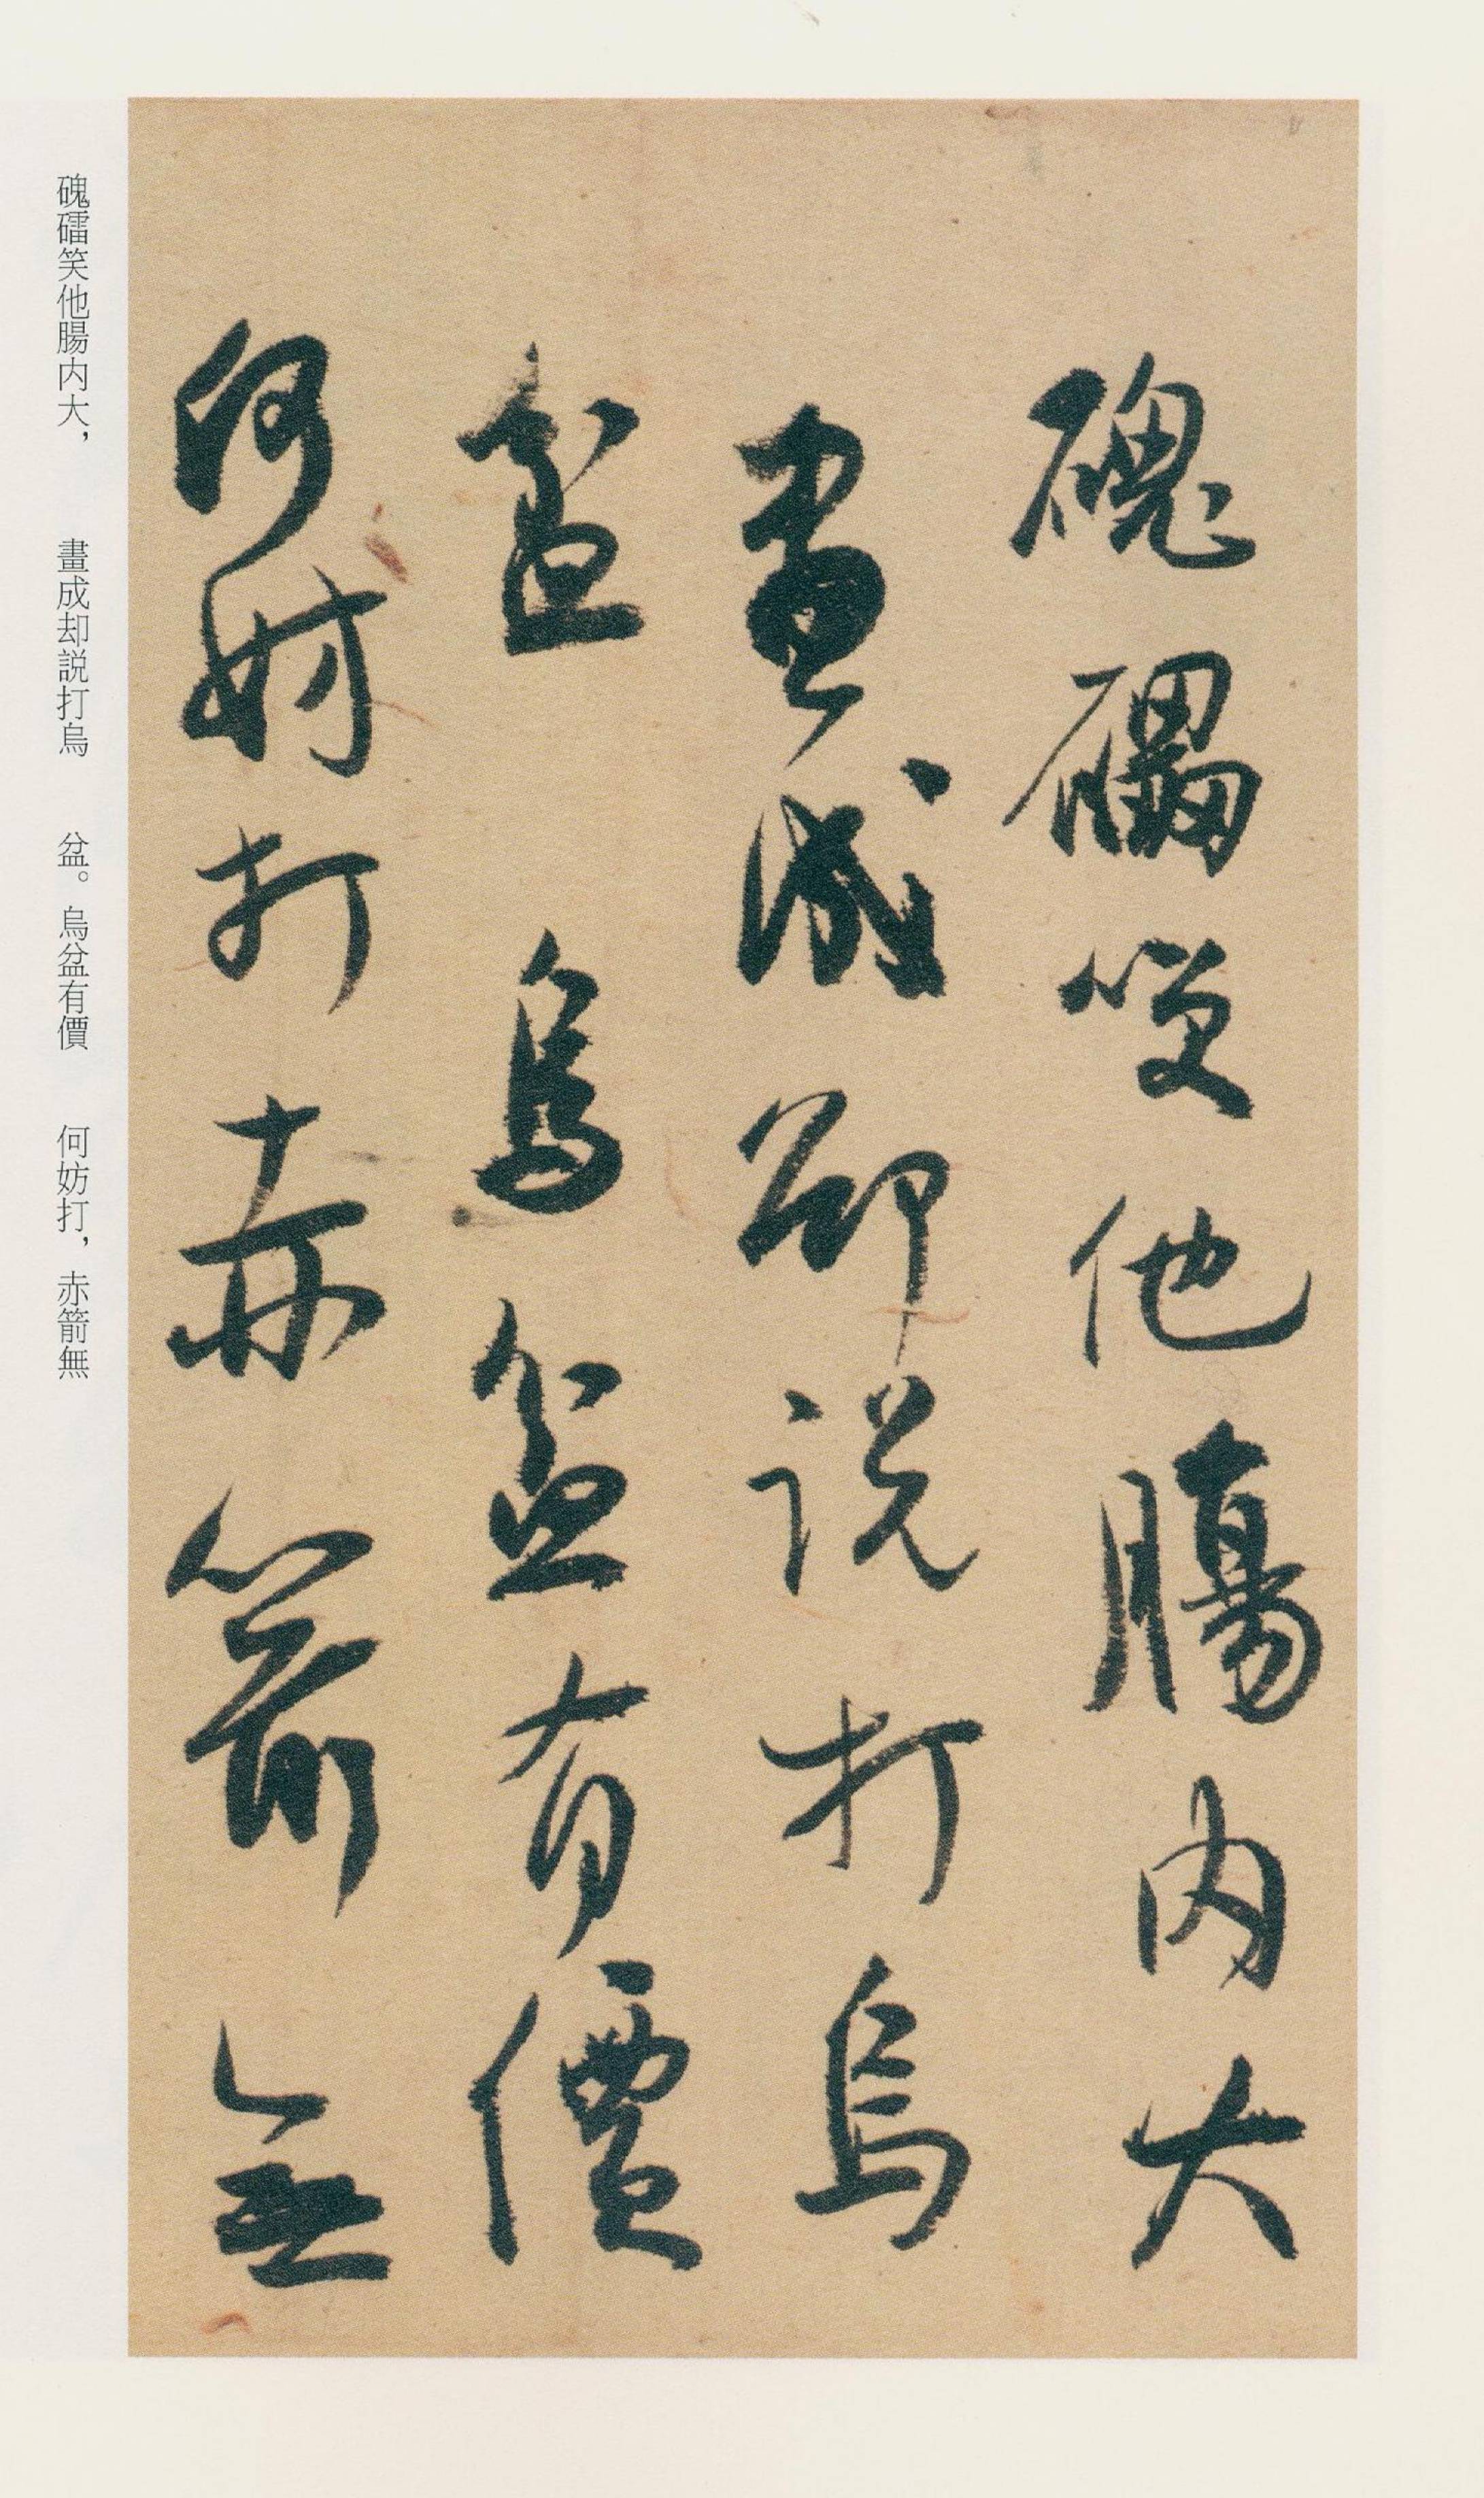 磈礧笑他腸内大
畫成却説打烏
盆烏盆有價
何妨打赤箭無
磈礌笑他腸内大，　畫成却説打烏　盆。烏盆有價　何妨打，赤箭無